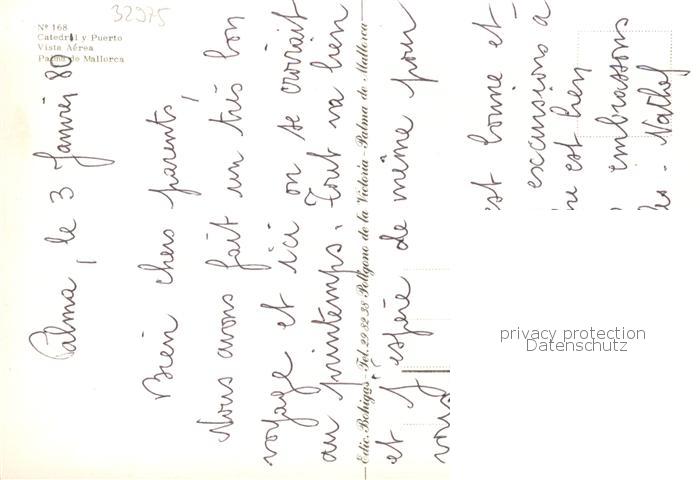 32975
Nº 168
Catedral y Puerto
Vista Aérea
Palma de Mallorca
Palma, le 3 Janvier 80
Bien chers parents,
Nous avons fait un très bon
voyage et ici on se croirait
au printemps. Tout va bien
et j'espère de même pour
vous
est bonne et
excursions à
est bien
embrassons
Edic. Bohigas - Tel. 29 82 38 Polígono de la Victoria - Palma de Mallorca
privacy protection
Datenschutz